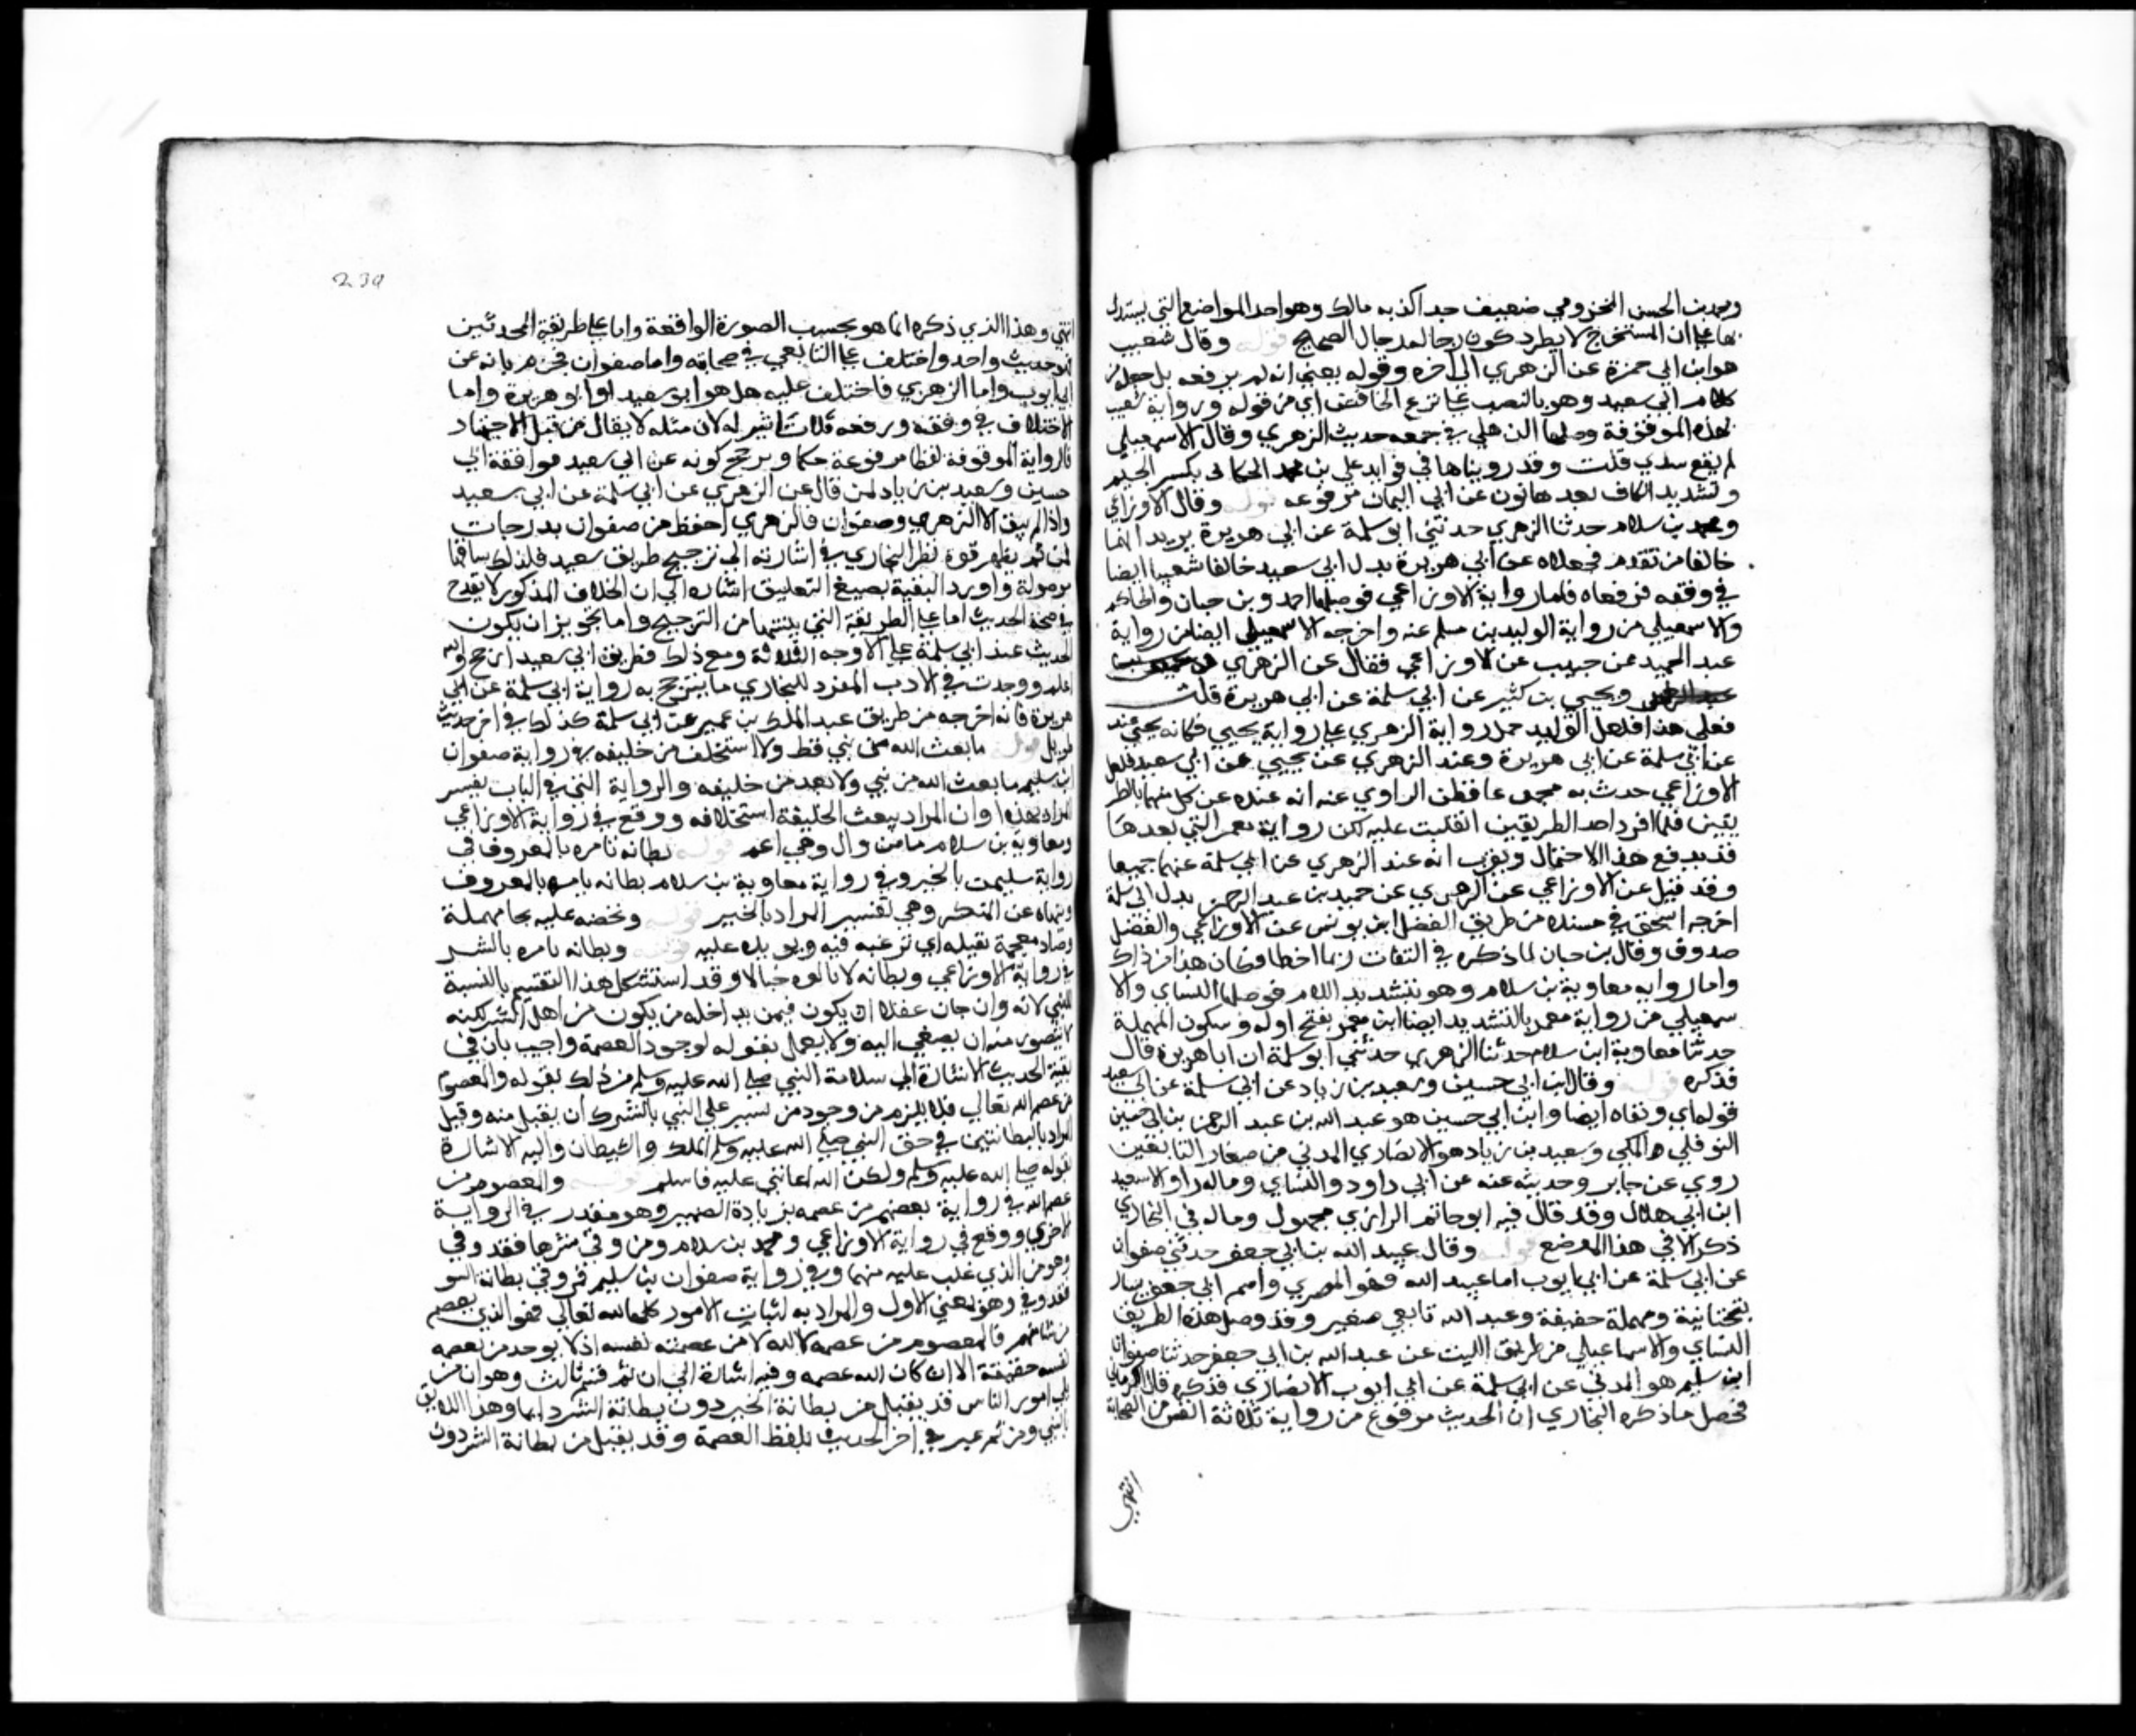 ومحمد بن الحسن المخزومي ضعيف جدا كذبه مالك وهو احد المواضع التي يستدل
بها على ان المستخرج لا يطرد كون رجاله رجال الصحيح قوله وقال شعيب
هو ابن ابي حمزة عن الزهري الى اخره وقوله يعني انه لم يرفعه بل جعله من
كلام ابي سعيد وهو بالنصب على نزع الخافض اي من قوله ورواية شعيب
هذه الموقوفة وصلها الذهلي في جمعه حديث الزهري وقال الاسمعيلي
لم يقع بيدي قلت وقد رويناها في فوايد علي بن محمد الجكاني بكسر الجيم
وتشديد الكاف بعدها نون عن ابي اليمان مرفوعه قوله وقال الاوزاعي
ومحمد بن سلام حدثنا الزهري حدثني ابو سلمة عن ابي هريرة يريد انهما
خالفا من تقدم فجعلاه عن ابي هريرة بدل ابي سعيد خالفا شعيبا ايضا
في وقفه فرفعاه فاما رواية الاوزاعي فوصلها احمد وبن حبان والحاكم
والاسمعيلي من رواية الوليد بن مسلم عنه واخرجه الاسمعيلي ايضا من رواية
عبد الحميد بن حبيب عن الاوزاعي فقال عن الزهري
ويحيي بن كثير عن ابي سلمة عن ابي هريرة قلت
فعلى هذا فلعل الوليد حمل رواية الزهري على رواية يحيي فكانه يحيى عند
عن ابي سلمة عن ابي هريرة وعند الزهري عن يحيي عن ابي سعيد فلعل
الاوزاعي حدث به مجموعا فظن الراوي عنه انه عنده عن كل منهما بالطر
يقين فلما افرد احد الطريقين انقلبت عليه لكن رواية معمر التي بعدها
قد يدفع هذا الاحتمال ويقرب انه عند الزهري عن ابي سلمة عنهما جميعا
وقد قيل عن الاوزاعي عن الزهري عن حميد بن عبد الرحمن بدل ابي سلمة
اخرجه اسحق في مسنده من طريق الفضل ابن يونس عن الاوزاعي والفضل
صدوق وقال بن حبان لما ذكره في الثقات ربما اخطا فكان هذا من ذاك
واما رواية معاوية بن سلام وهو بتشديد اللام فوصلها النساي والا
سمعيلي من رواية معمر بالتشديد ايضا ابن معمر بفتح اوله وسكون المهملة
حدثنا معاوية ابن سلام حدثنا الزهري حدثني ابو سلمة ان ابا هريرة قال
فذكره قوله وقال ابن ابي حسين وسعيد بن زياد عن ابي سلمة عن ابي سعيد
قوله اي وقفاه ايضا وابن ابي حسين هو عبد الله بن عبد الرحمن بن ابي حسين
النوفلي المكي وسعيد بن زياد هو الانصاري المدني من صغار التابعين
روي عن جابر وحديثه عنه عن ابي داود والنساي وماله راو الا سعيد
ابن ابي هلال وقد قال فيه ابو حاتم الرازي مجهول وماله في البخاري
ذكر الا في هذا الموضع قوله وقال عبيد الله بن ابي جعفر حدثني صفوان
عن ابي سلمة عن ابي ايوب اما عبيد الله فهو المصري واسم ابي جعفر يسار
بتحتانية ومهملة خفيفة وعبد الله تابعي صغير وقد وصل هذه الطريق
النساي والاسماعيلي من طريق الليث عن عبد الله بن ابي جعفر حدثنا صفوان
ابن سليم هو المدني عن ابي سلمة عن ابي ايوب الانصاري فذكره قال الكرماني
فحصل ما ذكره البخاري ان الحديث مرفوع من رواية ثلاثة انفس من الصحابة
انتهي
239
انتهي وهذا الذي ذكره انما هو بحسب الصورة الواقعة واما على طريقة المحدثين
فهو حديث واحد واختلف على التابعي في صحابيه واما صفوان فجزم بانه عن
ابي ايوب واما الزهري فاختلف عليه هل هو ابو سعيد او ابو هريرة واما
الاختلاف في وقفه ورفعه فلا تاثير له لان مثله لا يقال من قبل الاجتهاد
فالرواية الموقوفة لفظا مرفوعة حكما ويرجح كونه عن ابي سعيد موافقة ابن
حسين وسعيد بن زياد لمن قال عن الزهري عن ابي سلمة عن ابي سعيد
واذا لم يبق الا الزهري وصفوان فالزهري احفظ من صفوان بدرجات
فمن ثم يظهر قوة نظر البخاري في اشارته الى ترجيح طريق سعيد فلذلك ساقها
موصولة واورد البقية بصيغ التعليق اشارة الى ان الخلاف المذكور لا يقدح
في صحة الحديث اما على الطريقة التي بينتها من الترجيح واما تجويز ان يكون
الحديث عند ابي سلمة على الاوجه الثلاثة ومع ذلك فطريق ابي سعيد ارجح والله
اعلم ووجدت في الادب المفرد للبخاري ما يترجح به رواية ابي سلمة عن ابي
هريرة فانه اخرجه من طريق عبد الملك بن عمير عن ابي سلمة كذلك في اخر حديث
طويل قوله ما بعث الله من نبي قط ولا استخلف من خليفه في رواية صفوان
ابن سليم ما بعث الله من نبي ولا بعد من خليفه والرواية التي في الباب تفسر
المراد بهذه وان المراد ببعث الخليفة استخلافه ووقع في رواية الاوزاعي
ومعاوية بن سلام ما من وال وهي اعم قوله بطانه تامره بالمعروف في
رواية سليمن بالخير وفي رواية معاوية بن سلام بطانه يامره بالمعروف
وتنهاه عن المنكر وهي تفسير المراد بالخير قوله وتحضه عليه بحا مهملة
وضاد معجمة ثقيله اي ترغبه فيه ويوبده عليه قوله وبطانه تامره بالشر
في رواية الاوزاعي وبطانه لا تالوه خبالا وقد استشكل هذا التقسيم بالنسبة
للنبي لانه وان جان عقلا ان يكون فيمن يداخله من يكون من اهل الشر لكنه
لا يتصور منه ان يصغي اليه ولا يعمل بقوله لوجود العصمة واجيب بان في
بقية الحديث الاشارة الى سلامة النبي صلى الله عليه وسلم من ذلك بقوله والمعصوم
من عصم الله تعالى فلا يلزم من وجود من يشير على النبي بالشر ان يقبل منه وقيل
المراد بالبطانتين في حق النبي صلى الله عليه وسلم الملك والشيطان واليه الاشارة
بقوله صلى الله عليه وسلم ولكن الله اعانني عليه فاسلم قوله والمعصوم من
عصم الله في رواية بعضهم من عصمه بزيادة الضمير وهو مقدر في الرواية
الاخري ووقع في رواية الاوزاعي ومحمد بن سلام ومن وقي شرها فقد وقي
وهو من الذي غلب عليه منهما وفي رواية صفوان بن سليم فمن وقي بطانة السو
فقد وقي وهو بمعني الاول والمراد به اثبات الامور كلها لله تعالى فهو الذي يعصم
من شا منهم فالمعصوم من عصمه الله لا من عصمته نفسه اذ لا يوجد من تعصمه
نفسه حقيقة الا ان كان الله عصمه وفيه اشارة الى ان ثم قسم ثالث وهو ان من
يلي امور الناس قد يقبل من بطانة الخير دون بطانة الشر دايما وهذا اللايق
بالنبي ومن ثم عبر في اخر الحديث بلفظ العصمة وقد يقبل من بطانة الشر دون